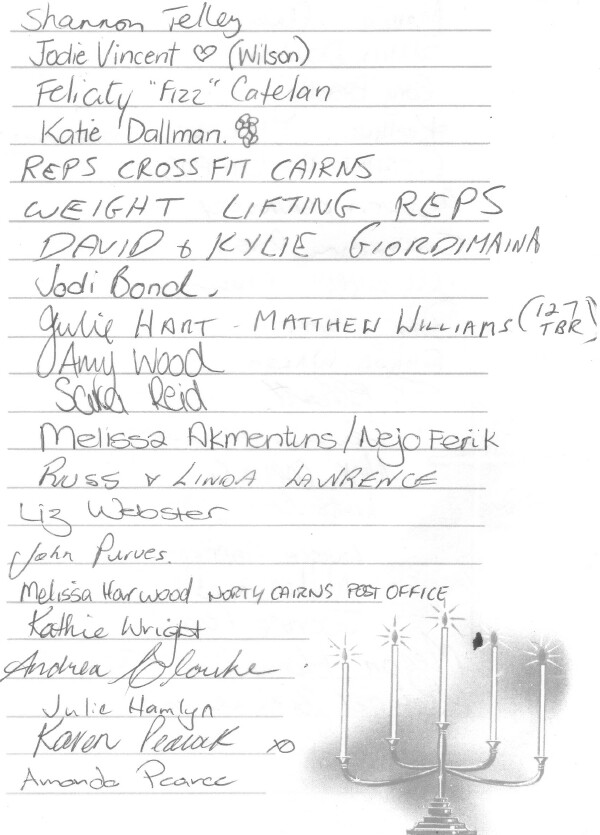 Shannon Telley
Jodie Vincent ♡ (Wilson)
Felicity "Fizz" Catelan
Katie Dallman.
REPS CROSSFIT CAIRNS
WEIGHT LIFTING REPS
DAVID & KYLIE GIORDIMAINA
Jodi Bond.
Julie HART - MATTHEW WILLIAMS (127 TBR)
Amy Wood
Sara Reid
Melissa Akmentins/Nejo Ferik
RUSS & LINDA LAWRENCE
Liz Webster
John Purves.
Melissa Harwood NORTH CAIRNS POST OFFICE
Kathie Wright
Andrea
Julie Hamlyn
Karen xo
Amanda Pearce